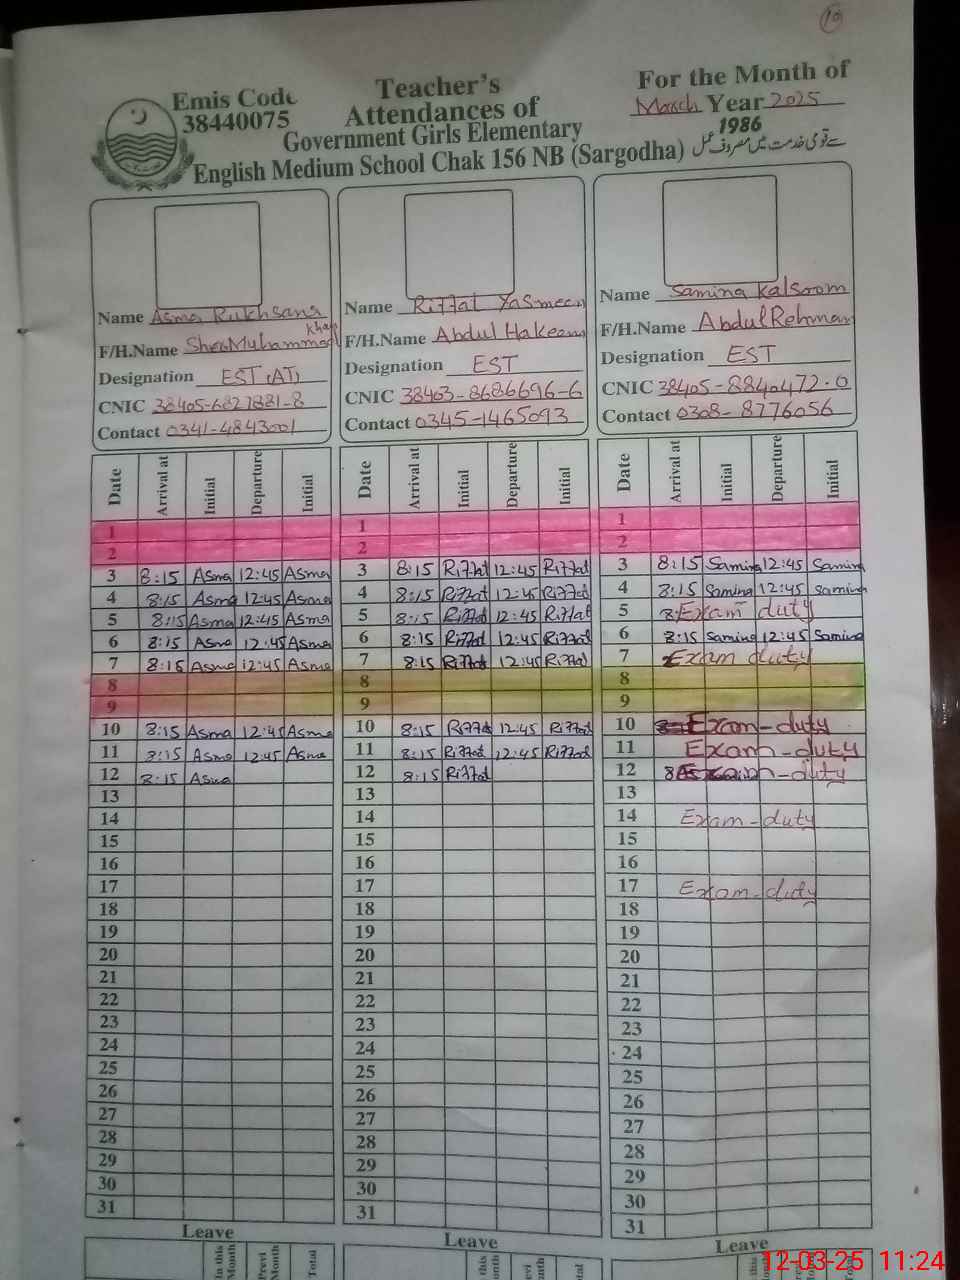 19
Emis Code
38440075
Teacher's
Attendances of
Government Girls Elementary
English Medium School Chak 156 NB (Sargodha)
For the Month of
March Year 2025
1986 سے قومی خدمت میں مصروف عمل
Name Asma Rukhsana
F/H.Name Sher Muhammad Khan
Designation EST (AT)
CNIC 38405-6827881-8
Contact 0341-4843001
Name Riffat Yasmeen
F/H.Name Abdul Hakeem
Designation EST
CNIC 38403-8686696-6
Contact 0345-1465093
Name Samina Kalsoom
F/H.Name Abdul Rehman
Designation EST
CNIC 38405-8840472-0
Contact 0308-8776056
Date Arrival at Initial Departure Initial Date Arrival at Initial Departure Initial Date Arrival at Initial Departure Initial
1 1 1
2 2 2
3 8:15 Asma 12:45 Asma 3 8:15 Riffat 12:45 Riffat 3 8:15 Samina 12:45 Samina
4 8:15 Asma 12:45 Asma 4 8:15 Riffat 12:45 Riffat 4 8:15 Samina 12:45 Samina
5 8:15 Asma 12:45 Asma 5 8:15 Riffat 12:45 Riffat 5 Exam duty
6 8:15 Asma 12:45 Asma 6 8:15 Riffat 12:45 Riffat 6 8:15 Samina 12:45 Samina
7 8:15 Asma 12:45 Asma 7 8:15 Riffat 12:45 Riffat 7 Exam duty
8 8 8
9 9 9
10 8:15 Asma 12:45 Asma 10 8:15 Riffat 12:45 Riffat 10 Exam-duty
11 8:15 Asma 12:45 Asma 11 8:15 Riffat 12:45 Riffat 11 Exam-duty
12 8:15 Asma 12 8:15 Riffat 12 Exam-duty
13 13 13
14 14 14 Exam-duty
15 15 15
16 16 16
17 17 17 Exam-duty
18 18 18
19 19 19
20 20 20
21 21 21
22 22 22
23 23 23
24 24 24
25 25 25
26 26 26
27 27 27
28 28 28
29 29 29
30 30 30
31 31 31
Leave Leave Leave
In this Month Previ Month Total this Month Previ Month
12-03-25 11:24